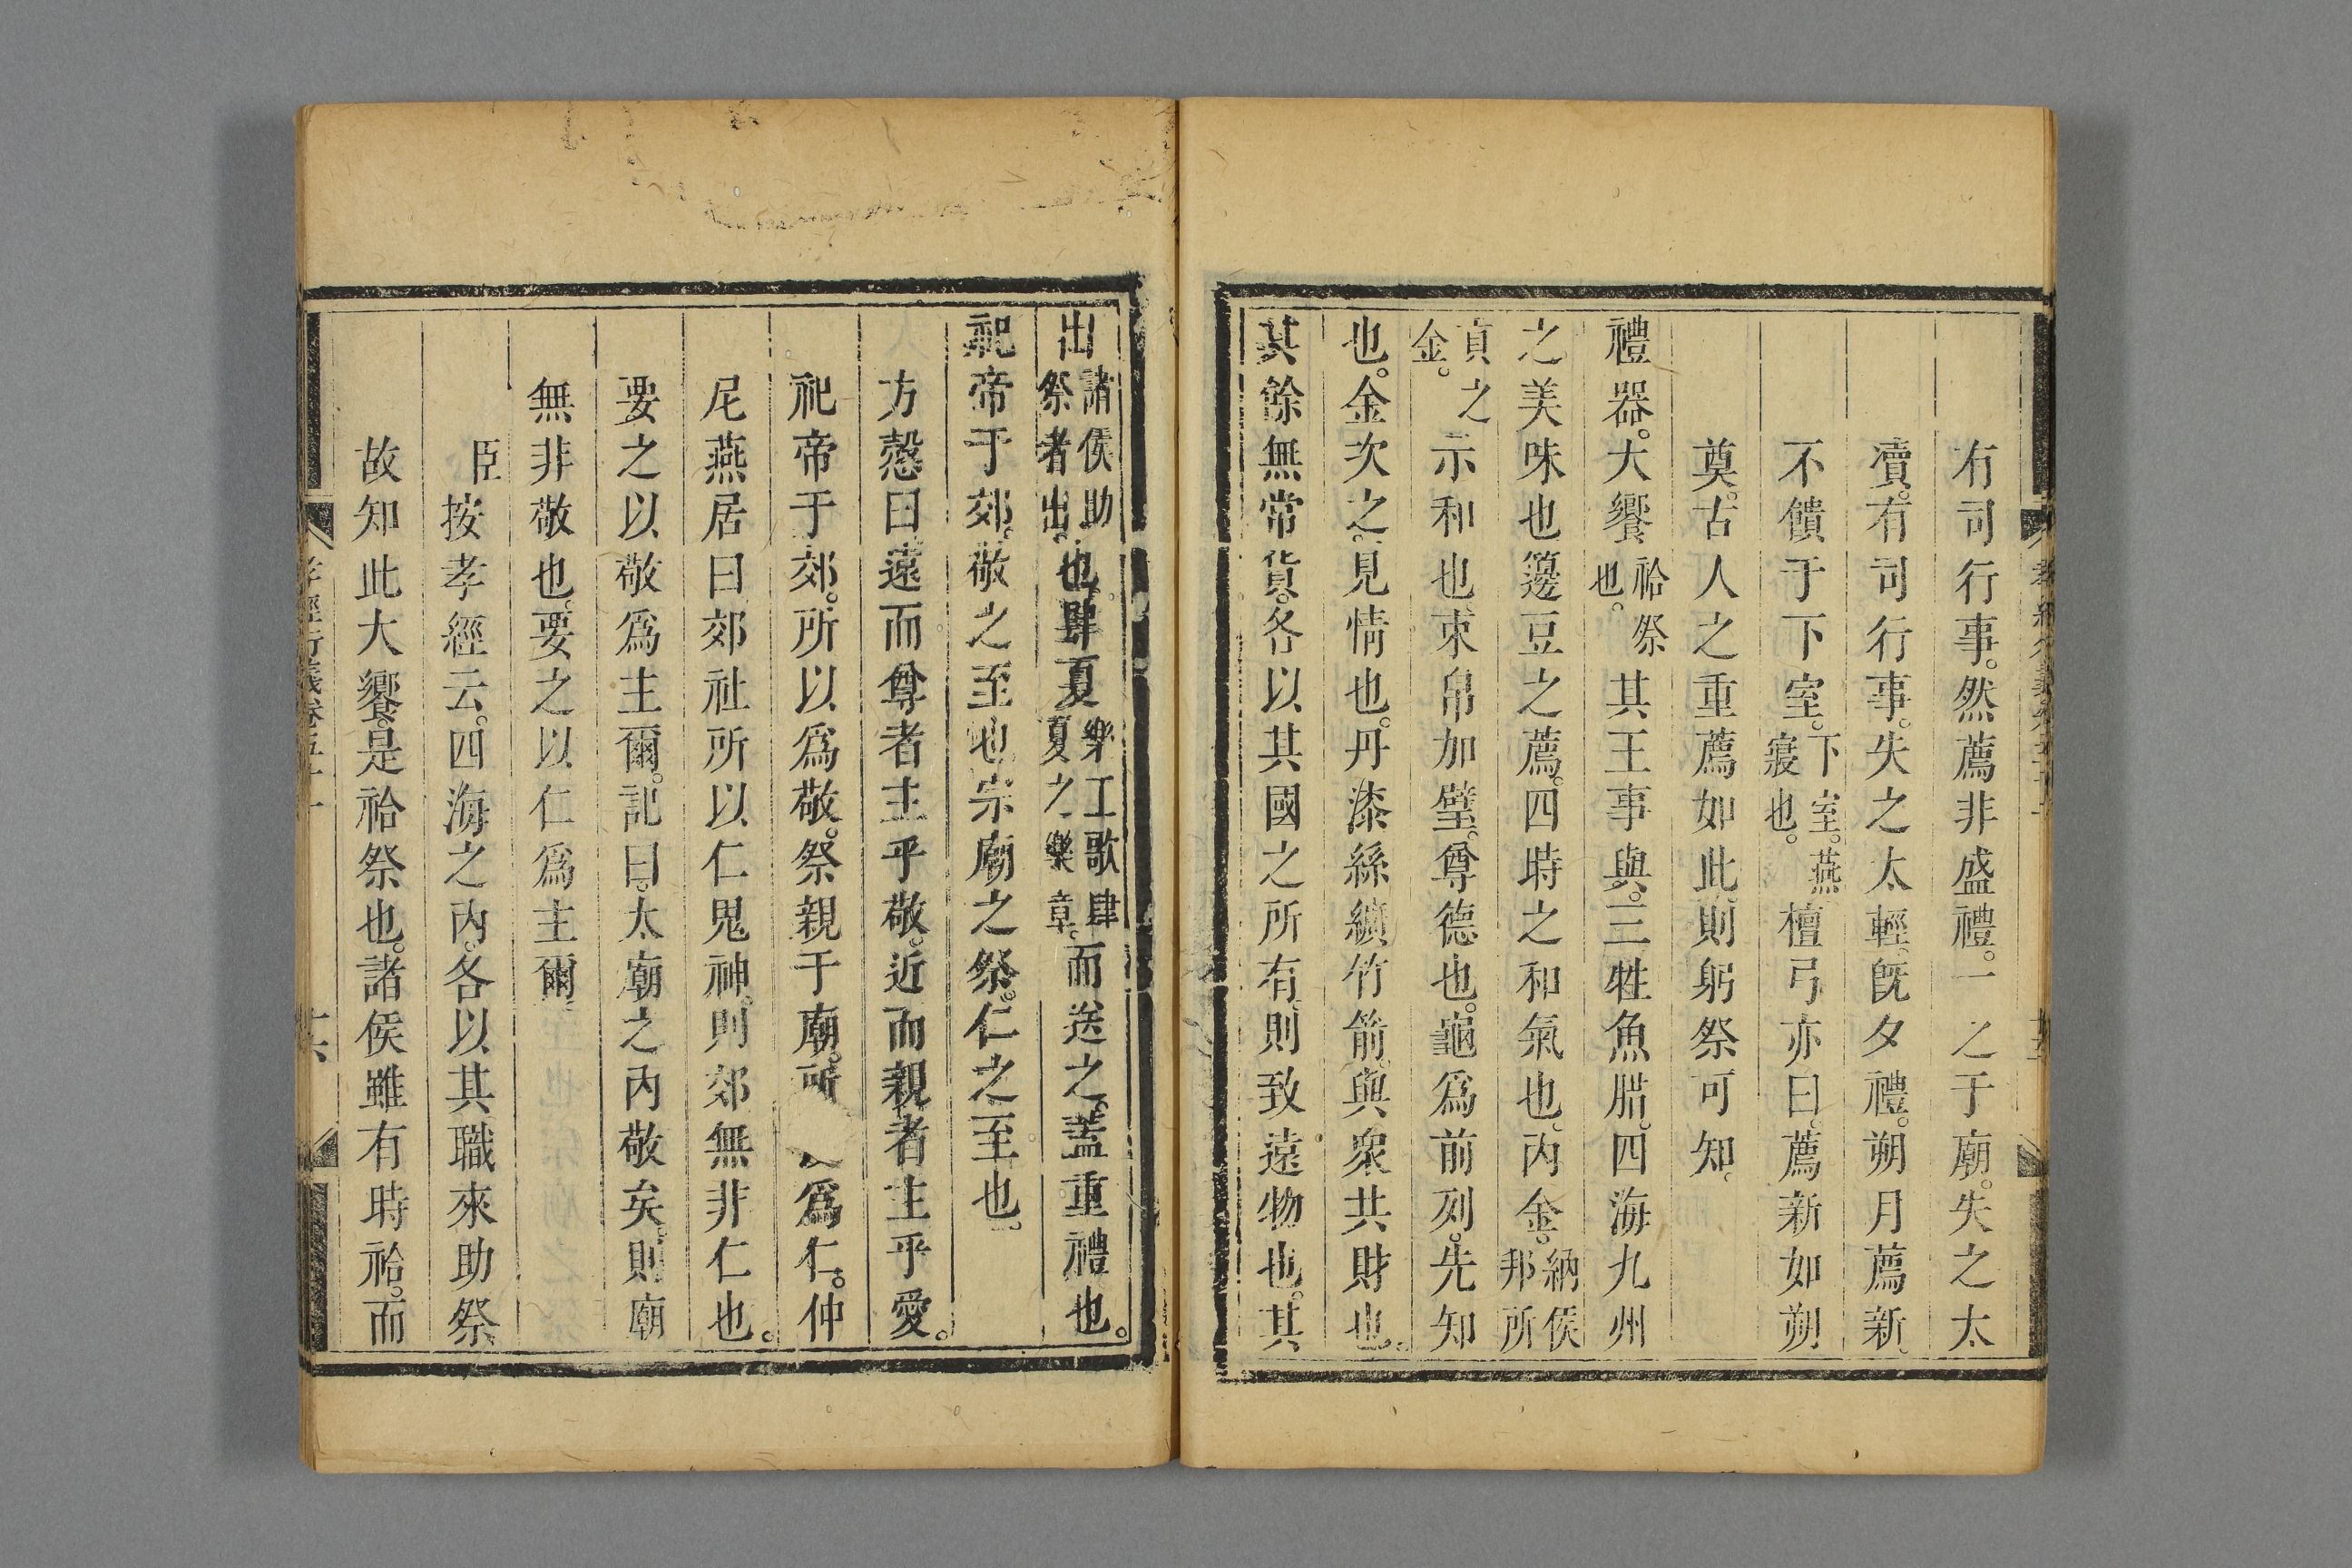 有司行事。然薦非盛禮。一之于廟。失之太
瀆。有司行事。失之太輕。既夕禮。朔月薦新。
不饋于下室。下室。燕寢也。檀弓亦曰。薦新如朔
奠。古人之重薦如此。則躬祭可知。
禮器。大饗祫祭也。其王事與。三牲魚腊。四海九州
之美味也籩豆之薦。四時之和氣也。內金。納侯邦所
貢之金。示和也束帛加璧。尊德也。龜爲前列。先知
也。金次之。見情也。丹漆絲纊竹箭。與衆共財也。
其餘無常貨。各以其國之所有。則致遠物也。其
出諸侯助祭者出。也肆夏樂工歌肆夏之樂章。而送之。蓋重禮也。
祀帝于郊。敬之至也宗廟之祭。仁之至也。
方慤曰遠而尊者主乎敬。近而親者主乎愛。
祀帝于郊。所以爲敬。祭親于廟。所爲仁。仲
尼燕居曰郊社所以仁鬼神。則郊無非仁也。
要之以敬爲主爾。記曰。太廟之內敬矣。則廟
無非敬也。要之以仁爲主爾。
臣按孝經云。四海之內。各以其職來助祭
故知此大饗。是祫祭也。諸侯雖有時祫。而